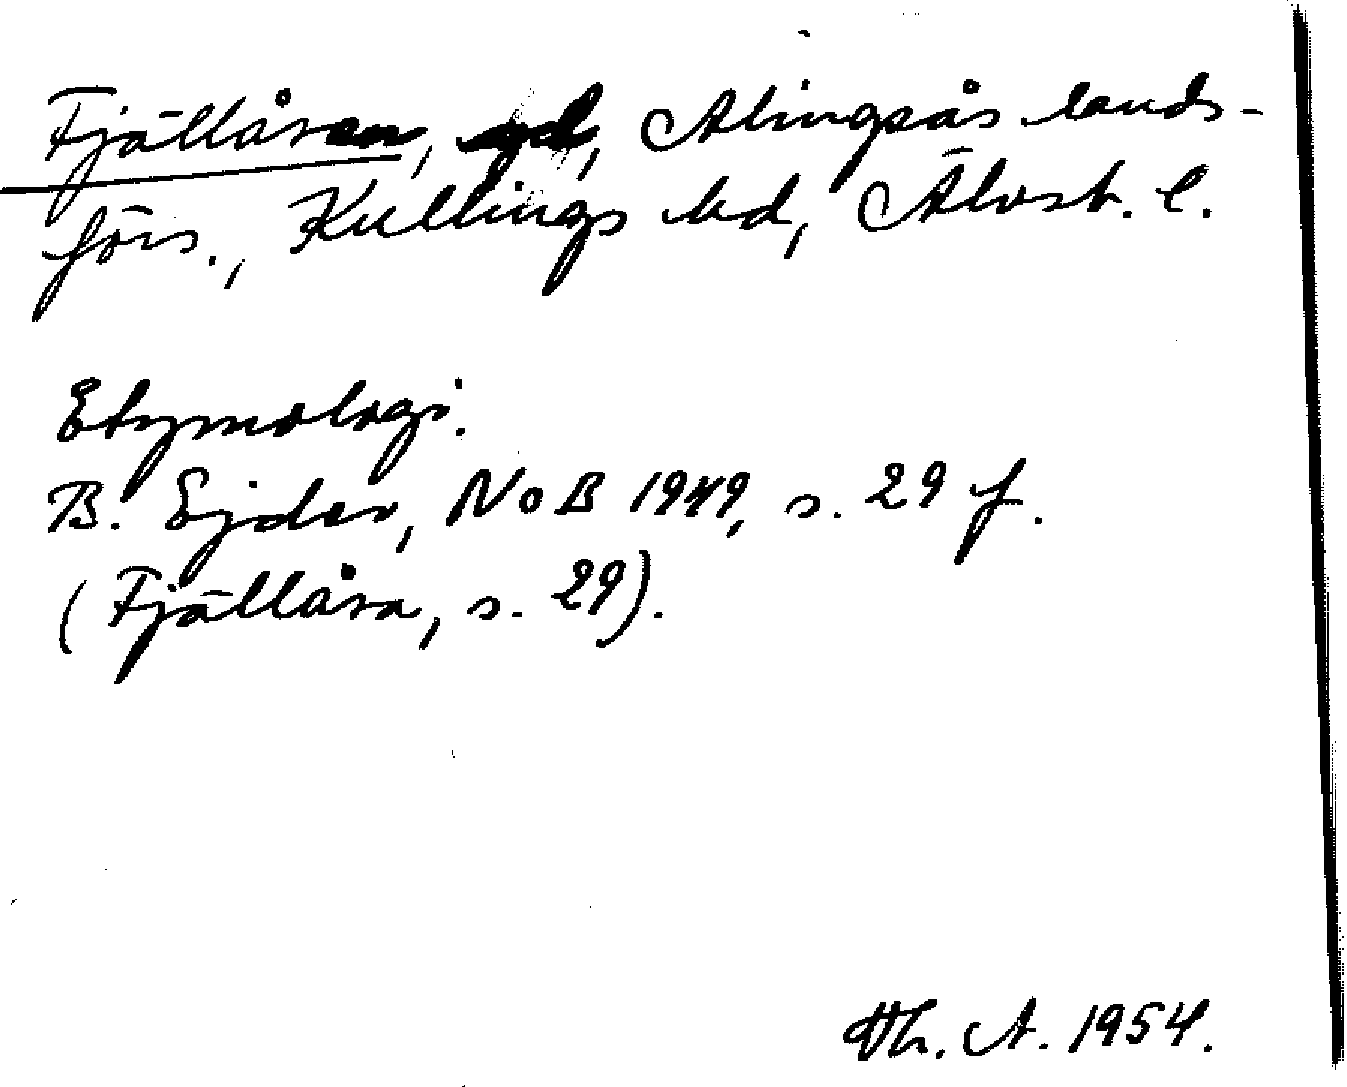 Fjällåran, gd, Alingsås lands-
förs., Kullings hd, Älvsb. l.
Etymologi.
B. Ejder, NoB 1949, s. 29 f.
(Fjällåra, s. 29).
Th. A. 1954.